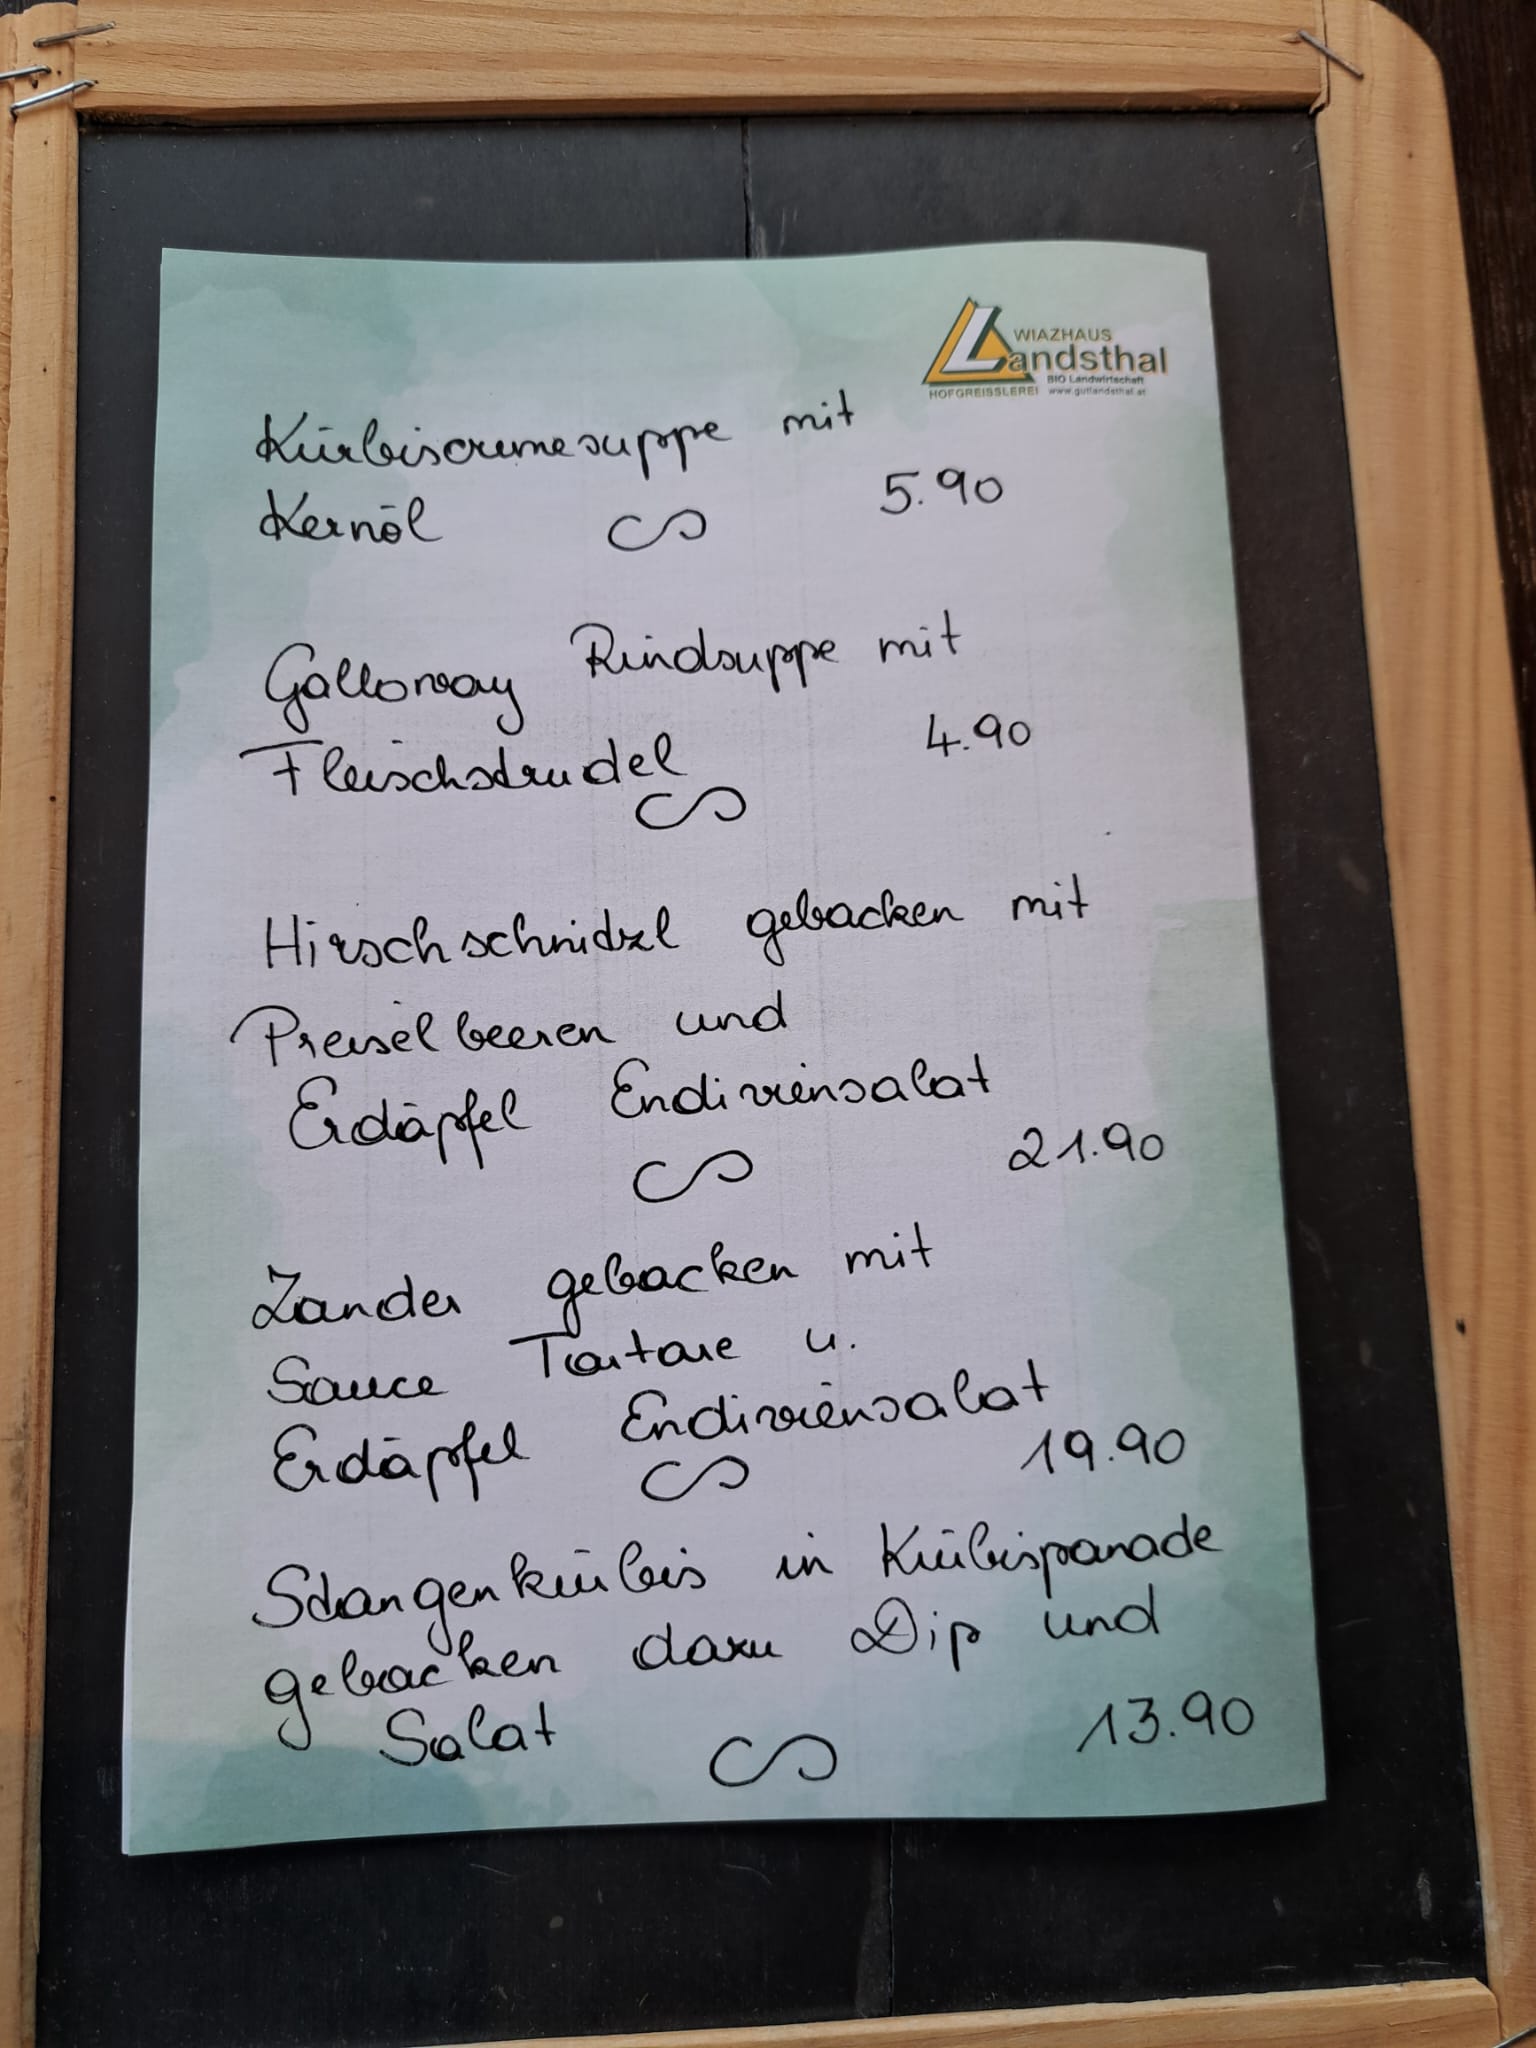 WIAZHAUS
Landsthal
BIO Landwirtschaft
HOFGREISSLEREI www.gutlandsthal.at
Kürbiscremesuppe mit
Kernöl 5.90
Galloway Rindsuppe mit
Fleischstrudel 4.90
Hirschschnitzl gebacken mit
Preiselbeeren und
Erdäpfel Endiviensalat
21.90
Zander gebacken mit
Sauce Tartare u.
Erdäpfel Endiviensalat
19.90
Stangenkürbis in Kürbispanade
gebacken dazu Dip und
Salat 13.90